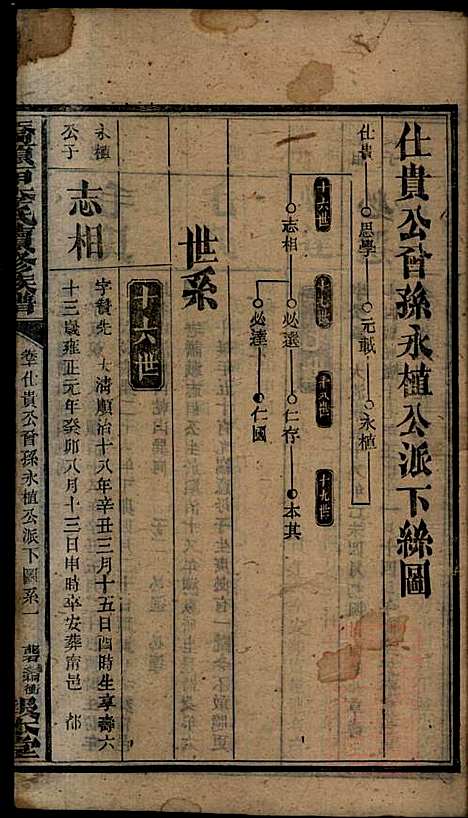 仕貴公曾孫永植公派下絲圖
仕貴 思學 元載 永植
十六世 十七世 十八世 十九世
志相 必選 仁存 本其
必達 仁國
世系
十六世
永植
公子
志相
字贊先 大清順治十八年辛丑三月十五日酉時生享壽六
十三歲雍正元年癸卯八月十三日申時卒安葬甯邑 都
續修族譜
卷 仕貴公曾孫永植公派下圖系一
堂